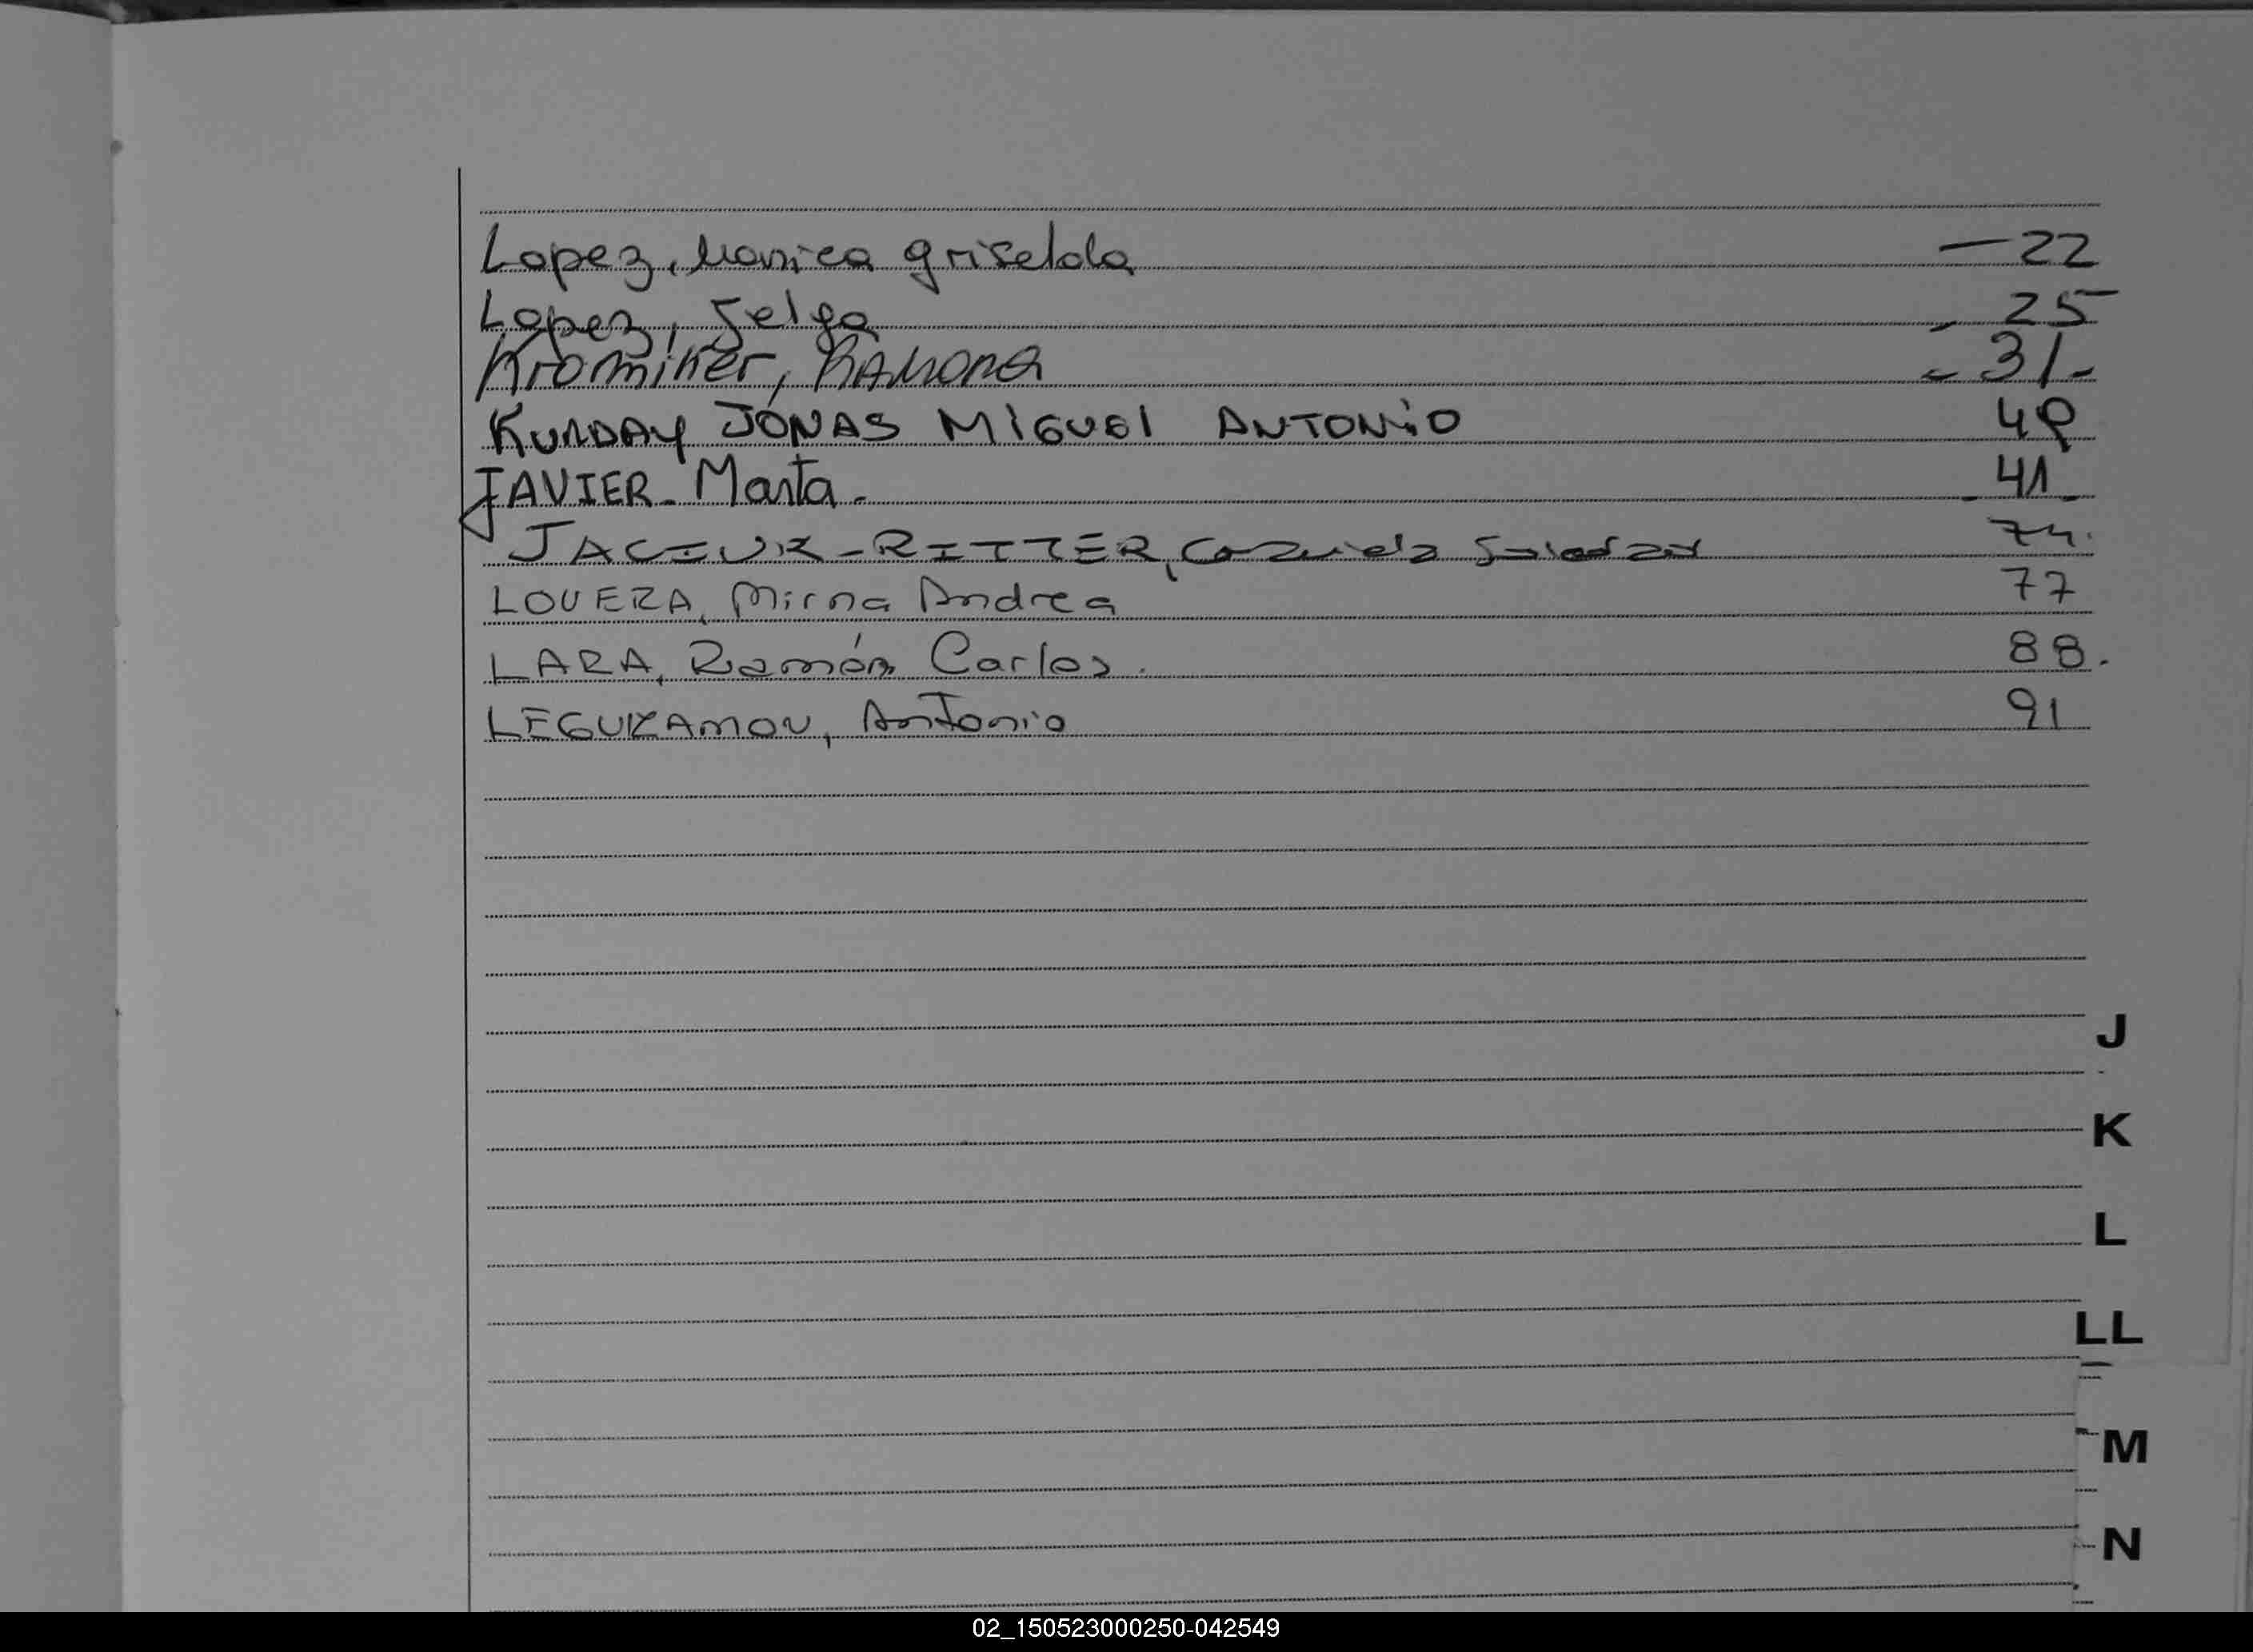 Lopez, Monica griselda — 22
Lopez, - 25
Krominker, RAMONA - 31.-
KUNDAY JONAS MIGUEL ANTONIO 40
JAVIER - Marta. - 41 -
JACIUK - RITTER, Soledad 74.
LOVERA, Mirna Andrea 77
LARA, Ramón Carlos. 88.
LEGUIZAMON, Antonio 91
J
K
L
LL
M
N
02_150523000250-042549